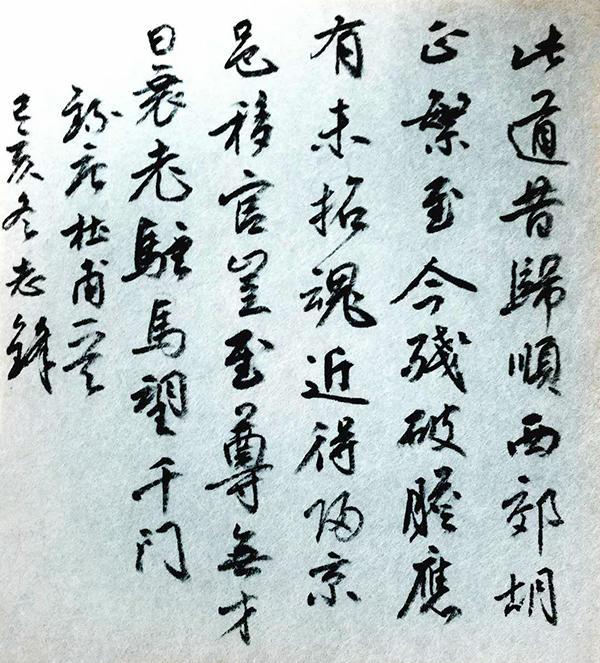 此道昔歸順西郊胡
正繁至今殘破膽應
有未招魂近得归京
邑移官豈至尊無才
日衰老駐馬望千门
杜甫
己亥冬志鋒